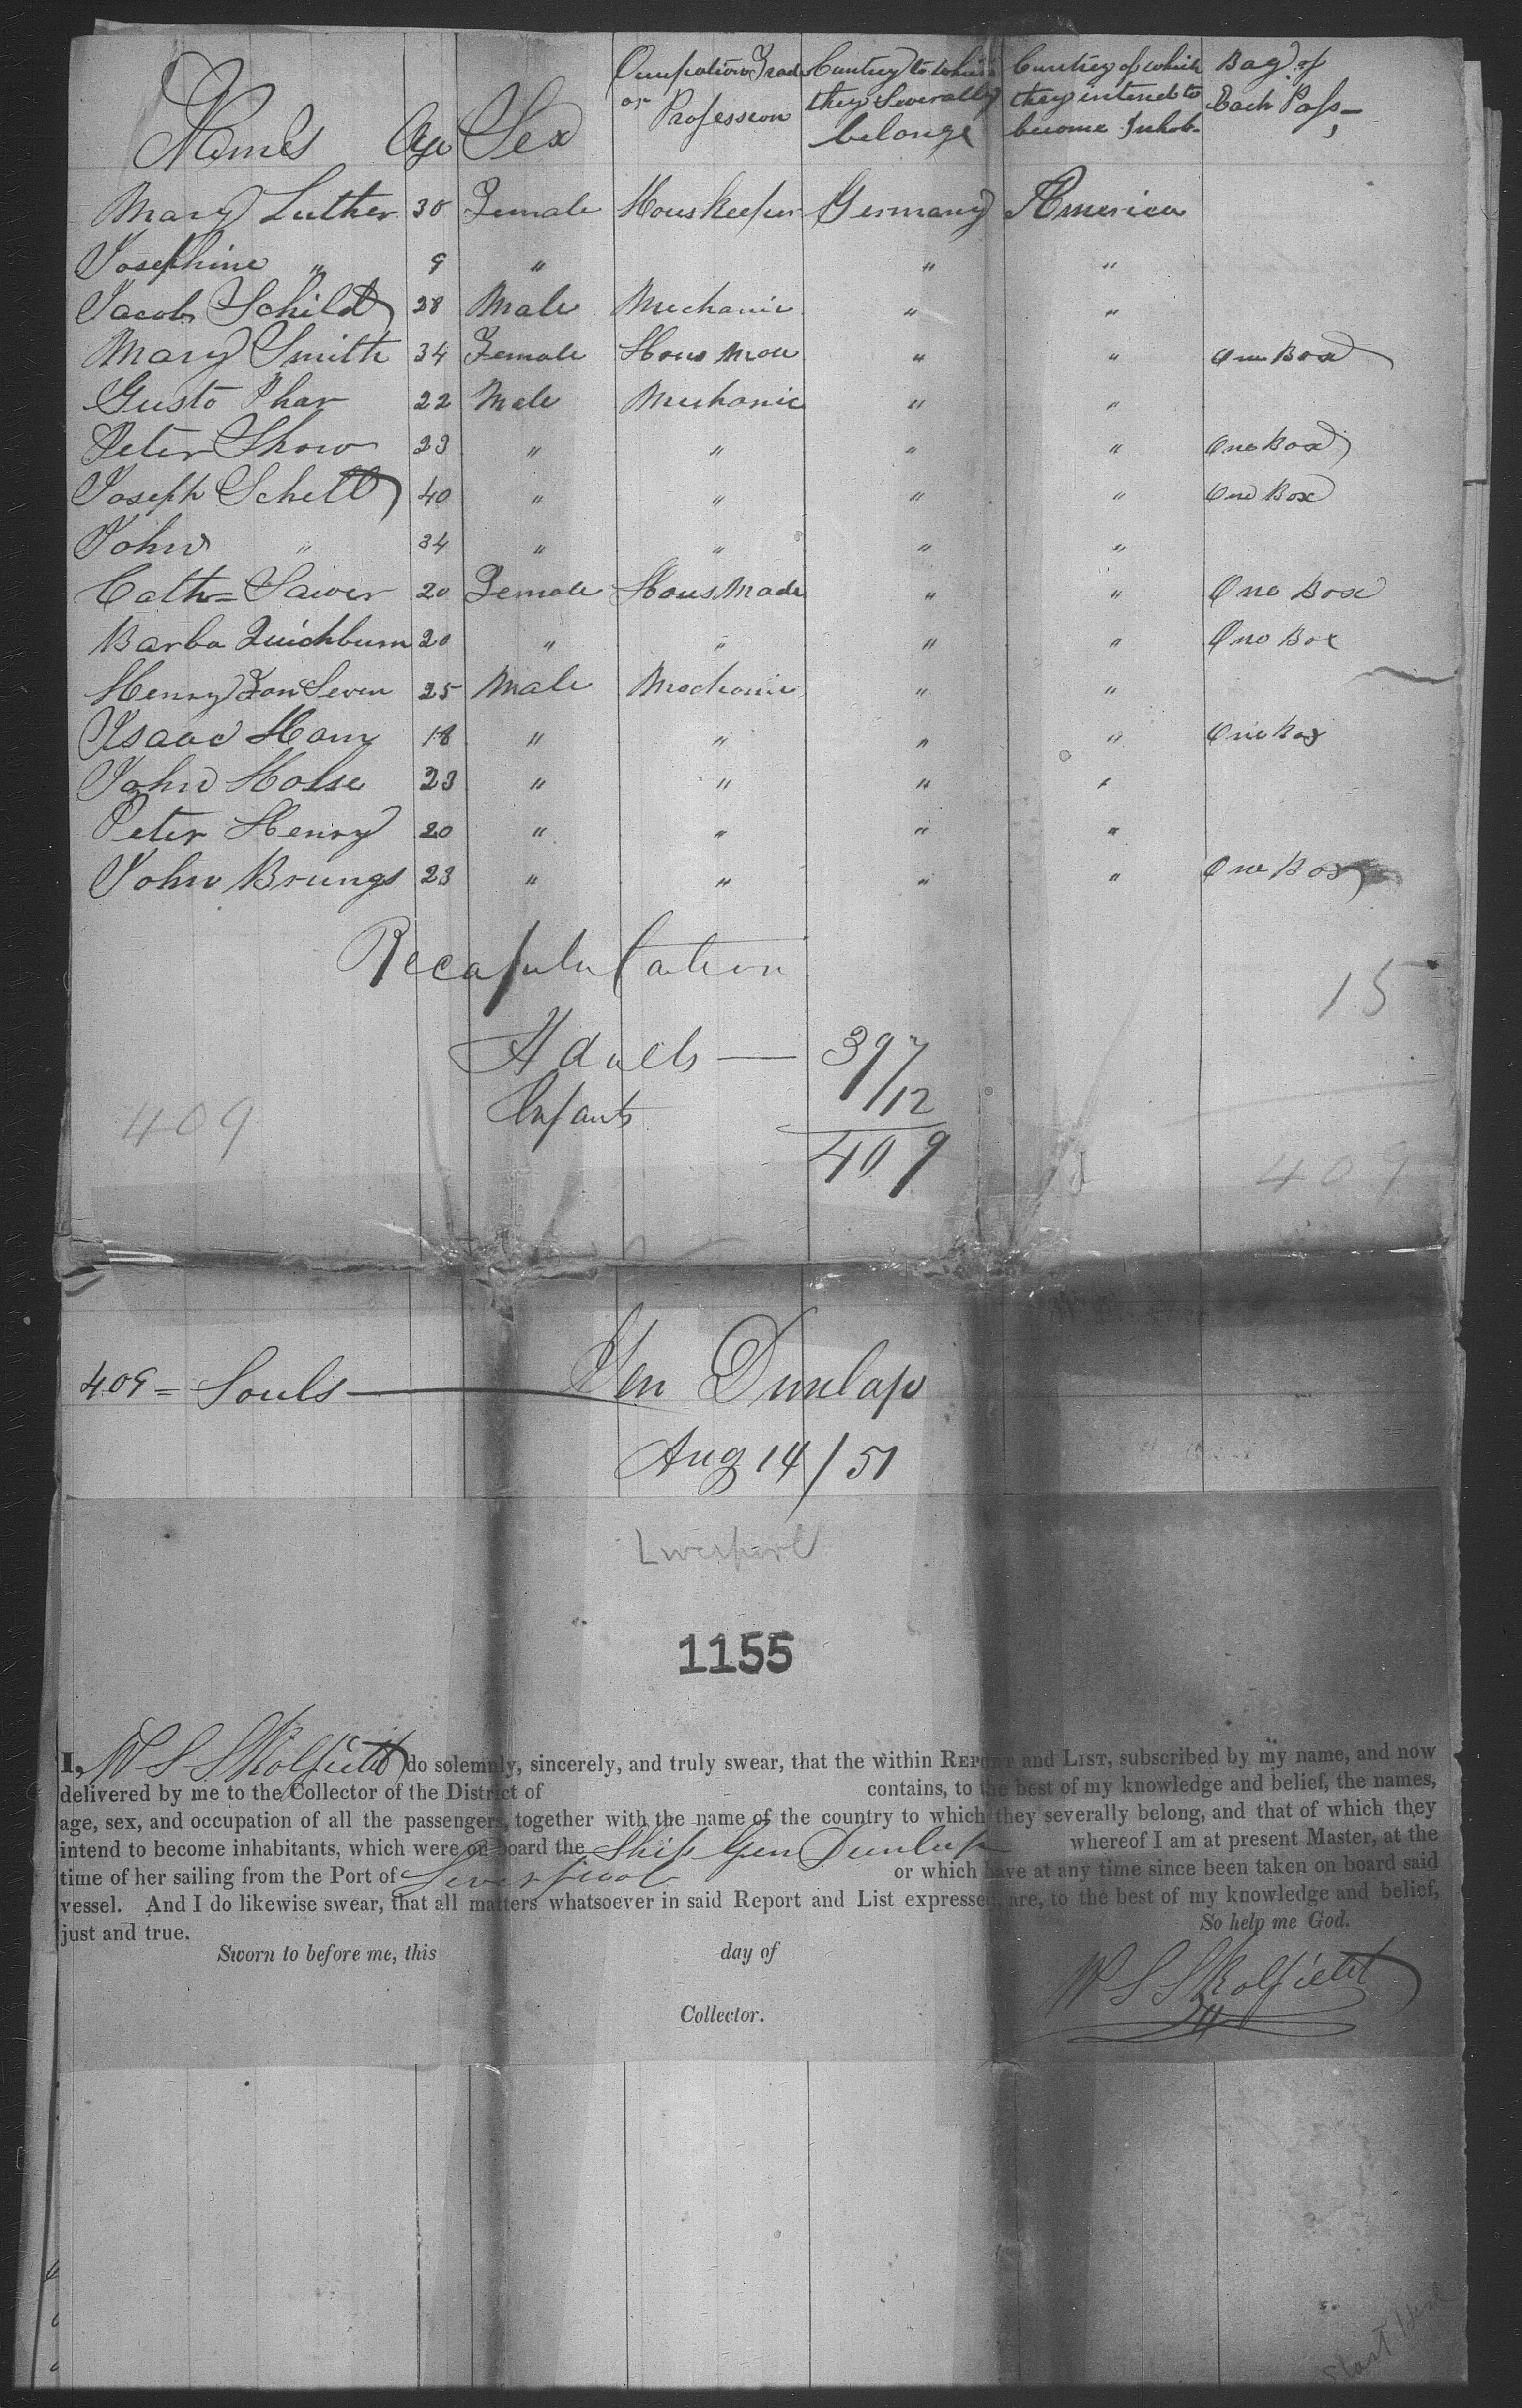 Names Age Sex Occupation Trade or Profession Country to which they Severally belonge Country of which they intend to become Inhab- Bag. of Each Pass-
Mary Luther 30 Female Houskeeper Germany America
Josephine " 9 " " "
Jacob Schild 28 Male Mechanic " "
Mary Smith 34 Female Hous " " One Box
Gusto Phar 22 Male Mechanic " "
Peter Show 23 " " " " One Box
Joseph Schell 40 " " " " One Box
John " 34 " " " "
Cath= Sawer 20 Female Hous Made " " One Box
Barba 20 " " " " One Box
Henry Seven 25 Male Mechanic " "
Isaac Ham 18 " " " " One Box
John Holse 23 " " " "
Peter Henry 20 " " " "
John Brungs 23 " " " " One Box
Recapitulation
15
Adults — 397
Infants 12
409 409 409
409 = Souls — Gen Dunlap
Aug 14/51
Liverpool
1155
I, W S Skolfield do solemnly, sincerely, and truly swear, that the within REPORT and LIST, subscribed by my name, and now
delivered by me to the Collector of the District of contains, to the best of my knowledge and belief, the names,
age, sex, and occupation of all the passengers, together with the name of the country to which they severally belong, and that of which they
intend to become inhabitants, which were on board the Ship Gen Dunlap whereof I am at present Master, at the
time of her sailing from the Port of Liverpool or which have at any time since been taken on board said
vessel. And I do likewise swear, that all matters whatsoever in said Report and List expressed, are, to the best of my knowledge and belief,
just and true. So help me God.
Sworn to before me, this day of
W S Skolfield
Collector.
Start Here